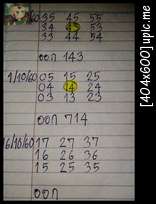 35 45 55
34 45 53
33 44 54
ออก 143
1/10/60 05 15 25
04 14 24
03 13 23
ออก 714
16/10/60 17 27 37
16 26 36
15 25 35
ออก
[404x600] upic.me